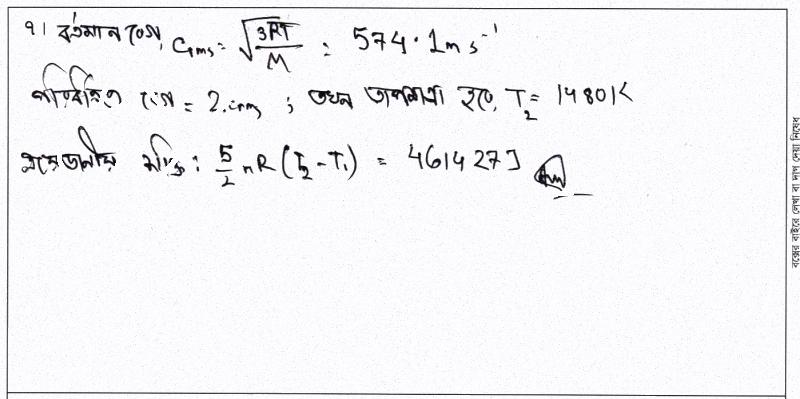 ৭। বর্তমান বেগ, Crms = √(3RT/M) = 574.1 ms⁻¹
পরিবর্তিত বেগ = 2.crms ; তখন তাপমাত্রা হবে, T₂ = 1480 K
প্রয়োজনীয় শক্তি : 5/2 nR (T₂ - T₁) = 461427 J (Ans)
বক্সের বাইরে লেখা বা দাগ দেয়া নিষেধ